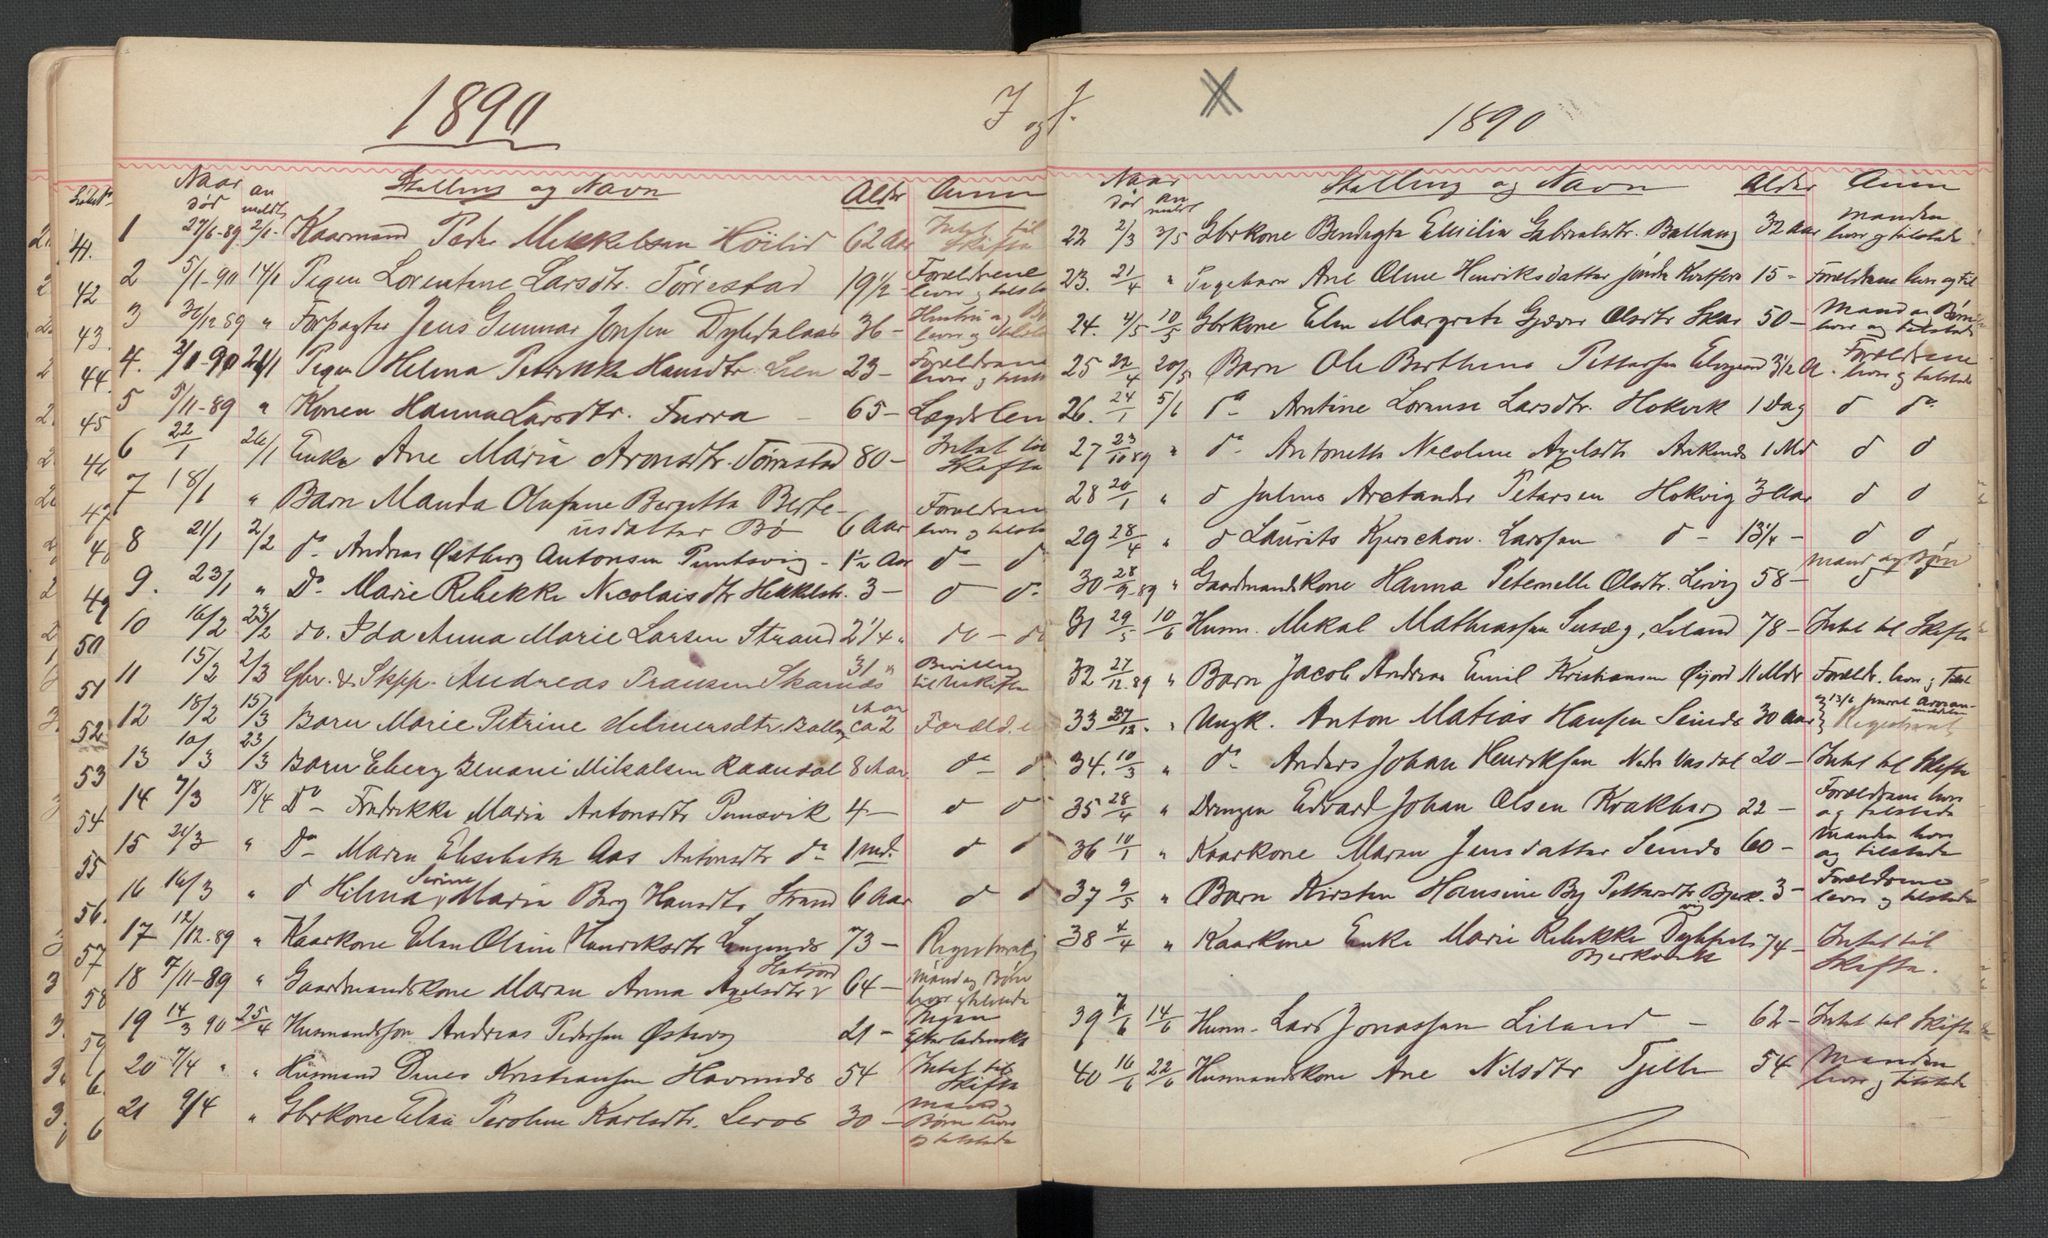 1890
Naar død
an meldt
Stilling og Navn
Alder
Anm
1 27/6-89 2/1- Kaarmand Peder Mikkelsen Höilid 62 Aar Intet til Skifte
2 5/1-90 14/1 Pigen Lorentine Larsdtr. Tørrestad 19 1/2 - Forældrene lever og tilstede
3 30/12 89 " Forpagter Jens Gunnar Jonsen Dyhedalaas 36 -
4. 2/1-90 21/1 Pigen Helma Petrikke Hansdtr. Lien 23 - Forældrene
5 5/11-89 " Konen Hanna Larsdtr. Furra 65 - Lægdslem
6 22/1 26/1 Enke Ane Maria Aronsdtr. Tørrestad 80 - Intet til Skifte
7 18/1 " Barn Manda Olufine Bergitta Berte-
usdatter Bø 6 Aar Forældrene
8 21/1 2/2 do Andreas Østberg Antonsen Puntsvig - 1 1/2 Aar do - d
9. 23/1 " Do Marie Rebekke Nicolaisdtr. 3 - d do
10 16/2 23/2 do. Ida Anna Marie Larsen Strand 2 1/4 " do - do
11 15/2 2/3 Gbr. & Skpp. Andreas Skarnes 31 " Bevilling til Uskiften
12 18/2 15/3 Barn Marie Petrine Helmersdtr. Ballg ca 2 Aar Foræld.
13 10/3 23/3 Barn Eberg Benoni Mikalsen Raandal 8 Aar. do - d
14 7/3 18/4 Do - Fredrikke Maria Antonsdtr Punsvik 4 - d d
15 21/3 " Do - Maren Elisebeth Aas Antonsdtr do 1 Md. d d
16 16/3 " d Hilma Serine Maria Berg Hansdtr Strand 6 Aar d d
17 12/12-89 " Kaarkone Elen Oline Henriksdtr. 73 -
18 7/11-89 " Gaardmandskone Maren Anna Axelsdtr 64 - Mand og Børn lever
19 14/3 90 25/4 Husmandssøn Andreas Pedersen Østervg 21 - Ingen Efterladenskb
20 7/4 " " Husmand Dines Kristiansen Havnnæs 54 Intet til Skifte
21 9/4 " Gbrkone Elen Karlsdtr. Leros 30 - Mand og Børn lever og tilstede
1890
Naar død
an meldt
Stilling og Navn
Alder
Anm
22 2/3 3/5 Gbrkone Bendigte Emilie Gabrielsdtr. Ballang 32 Aar Manden lever og tilstede
23. 21/4 " Pigebarn Ane Oline Henriksdatter 15 - Forældrene lever og til
24. 4/5 10/5 Gbrkone Elen Margrete Gjæver Olsdtr Skar 50 - Mand og Børn lever og tilstede
25 22/4 20/5 Barn Ole Berthins Pettersen Elvegaard 3 1/2 A. Forældrene lever og tilstede
26. 24/1 5/6 do Antine Lorense Larsdtr. Hokvik 1 Dag d do
27 23/10 89 " do Antonette Nicoline Axelsdtr Ankenes 1 Md d d
28 20/1 " d Julius Arctander Petersen Hokvig 3 Aar d d
29 28/4 " d Laurits Kjerschow Larssen d - 13 1/4 - d d
30 28/9 89 " Gaardmandskone Hanna Peternelle Olsdtr. Leirig 58 - Mand og Børn d
31 29/5 10/6 Husm. Mekal Mathiassen Susæg, Liland 78 - Intet til Skifte
32 27/12 89 " Barn Jacob Andreas Emil Kristiansen Øijord 11 Mdr Foræld. lever og Tilst
33 27/12 " Ungk. Anton Matias Hansen Seines 30 Aar
34. 10/3 " do Anders Johan Henriksen Nedre Vasdal 20 - Intet til Skifte
35 28/4 " Drengen Edvard Johan Olsen Krakberg 22 - Forældrene lever og tilstede
36 10/1 " Kaarkone Maren Jensdatter Seines 60 - Manden lever og tilstede
37 9/5 " Barn Kirsten Hansine Bg Pettersdtr Bjerkvig. 3 - Forældrene lever og tilstede
38 4/4 " Kaarkone Enke Marie Rebekke 74 - Intet til Skifte.
39 7/6 14/6 Husm. Lars Jonassen Liland - 62 - Intet til Skifte
40 16/6 22/6 Husmandskone Ane Nilsdtr Tjelle 54 Manden lever og tilstede
41.
42
43.
44.
45
46
47.
48
49
50
51
52
53
54
55
56.
57
58
59